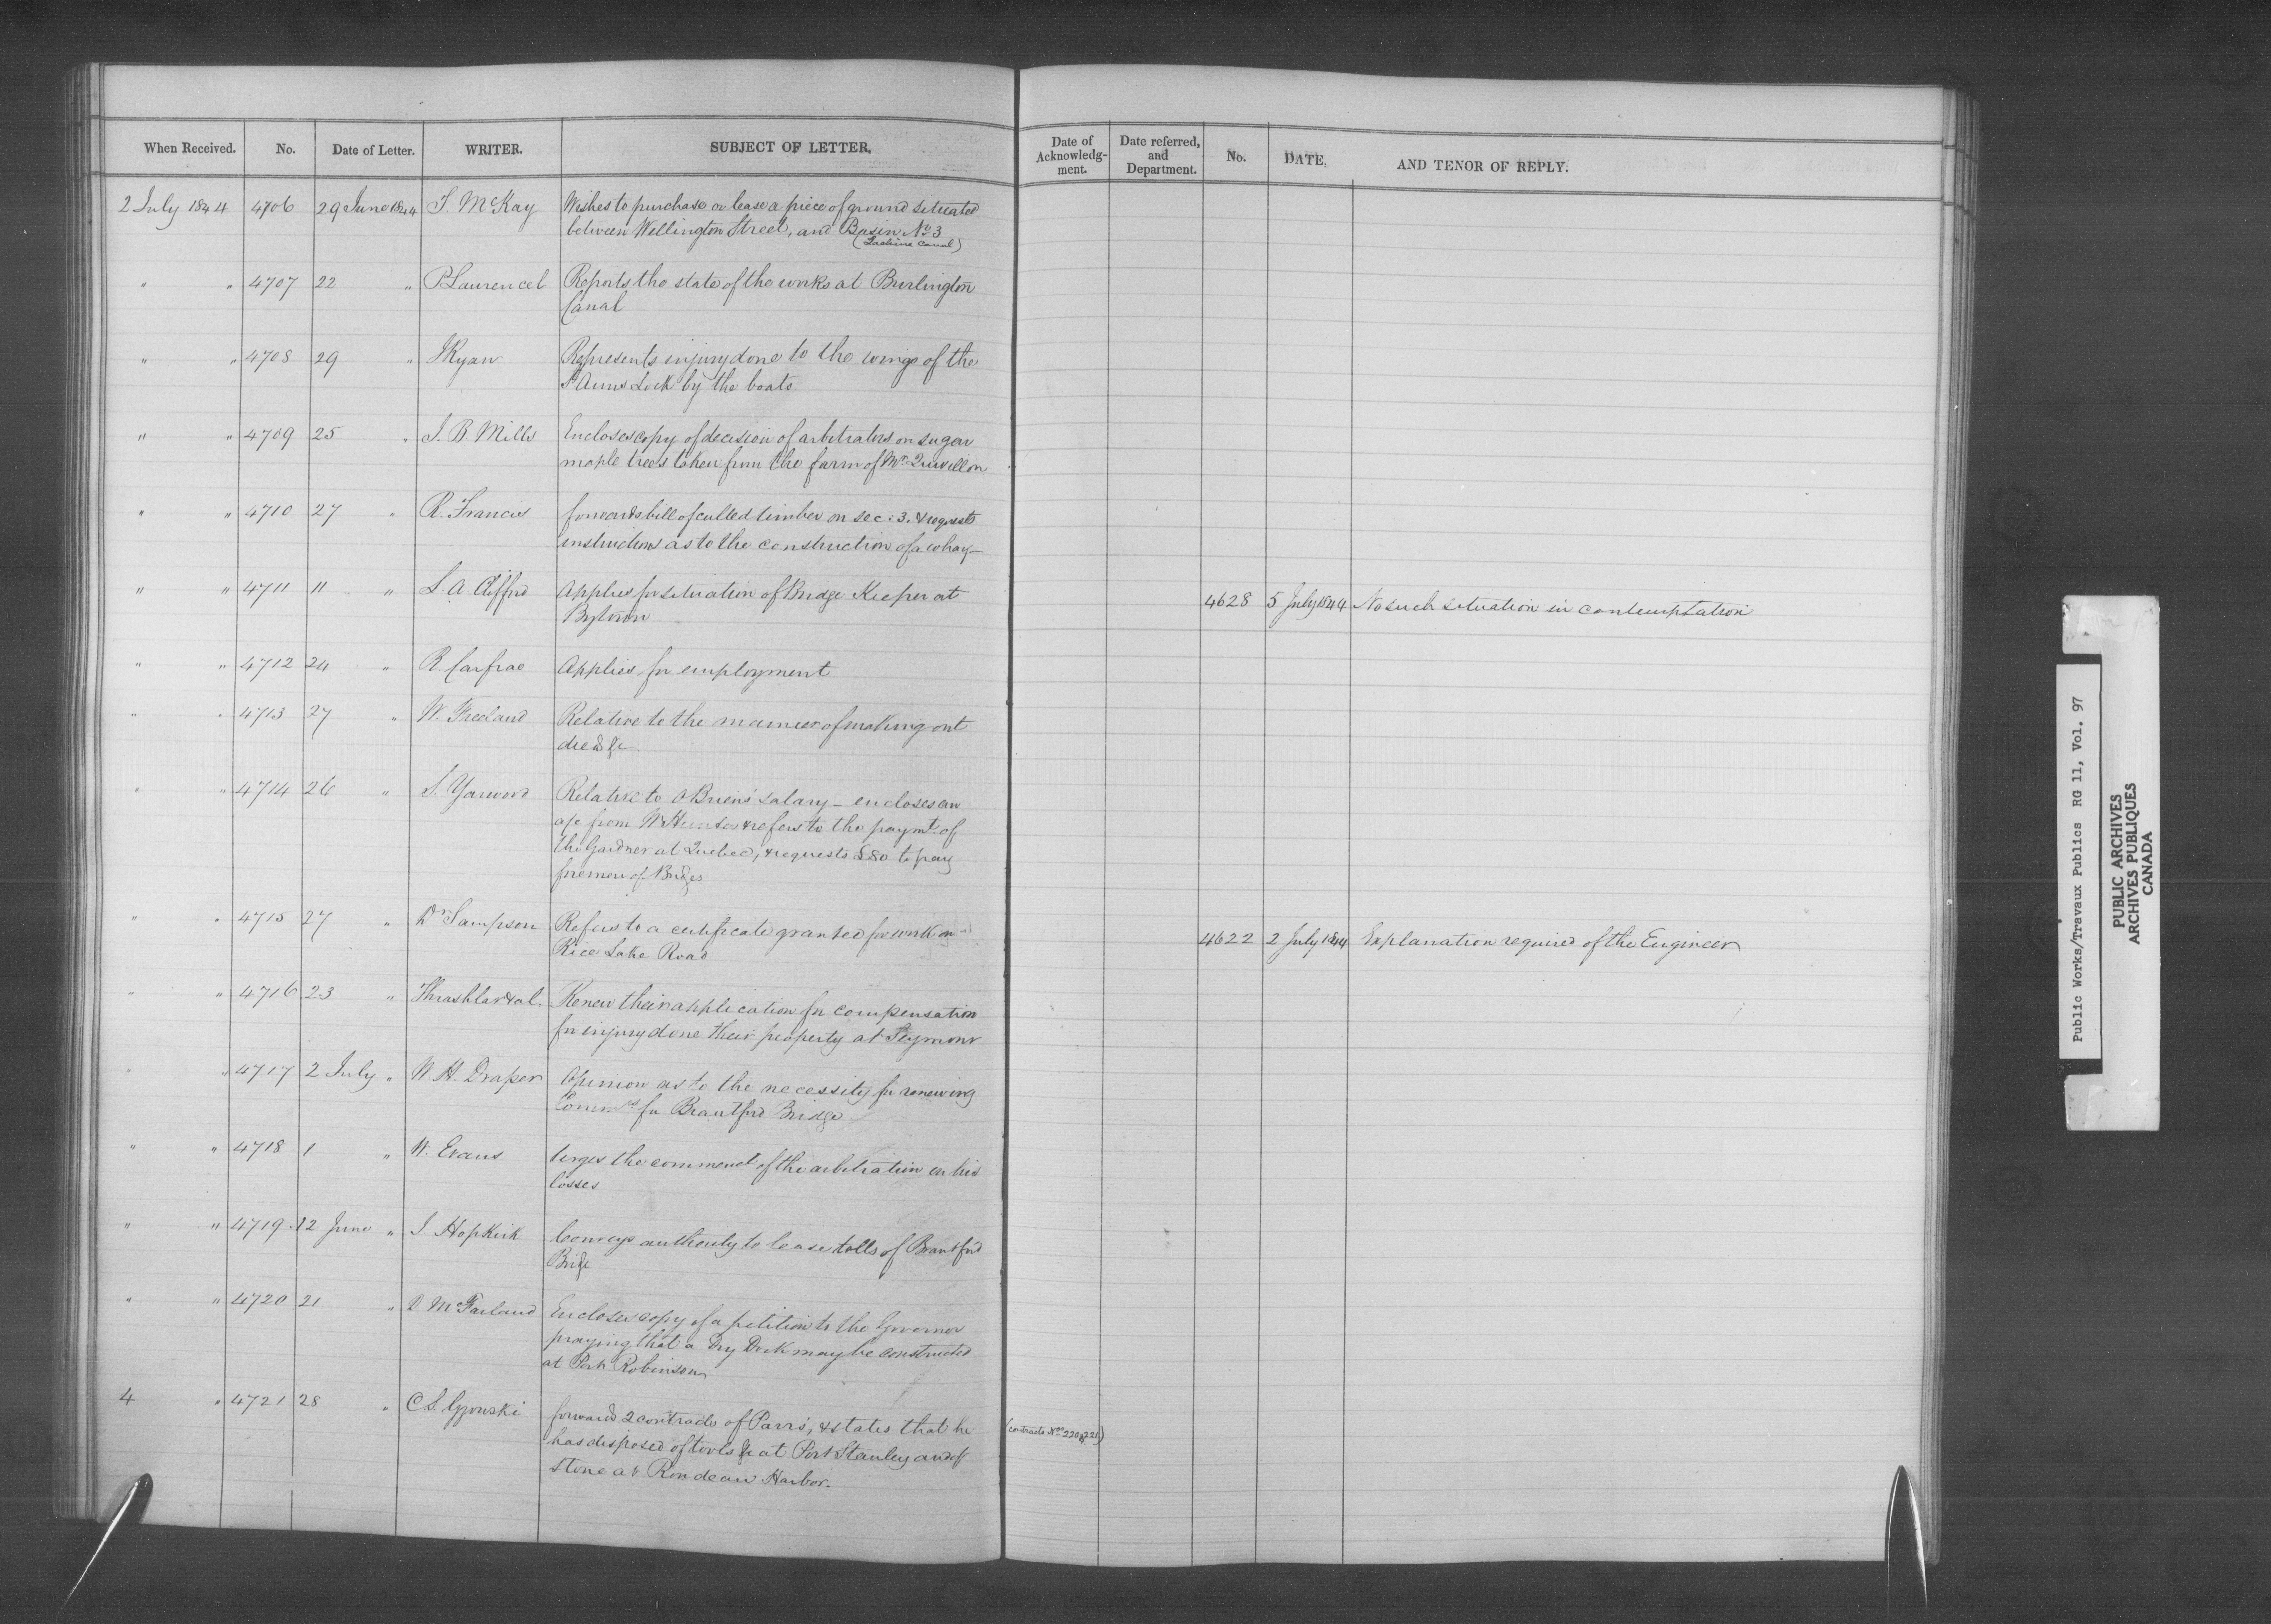 When Received. No. Date of Letter. WRITER. SUBJECT OF LETTER.
Date of Acknowledg-ment. Date referred, and Department. No. DATE, AND TENOR OF REPLY.
2 July 1844 4706 29 June 1844 T. McKay Wishes to purchase or lease a piece of ground situated
between Wellington Street, and Basin No. 3
(Lachine Canal)
" " 4707 22 " P Laurencel Reports the state of the works at Burlington
Canal
" " 4708 29 " J Ryan Represents injury done to the wings of the
St Anns Lock by the boats
" " 4709 25 " J. B. Mills Encloses copy of decision of arbitrators on sugar
maple trees taken from the farm of Mr. Quevillon
" " 4710 27 " R. Francis forwards bill of culled timber on sec: 3. & requests
instructions as to the construction of a wharf
" " 4711 11 " L. A Clifford Applies for situation of Bridge Keeper at
Bytown
4628 5 July 1844 No such situation in contemplation
" " 4712 24 " R. Carfrae Applies for employment
" " 4713 27 " W. Freeland Relative to the manner of making out
deeds &c
" " 4714 26 " S. Yarwood Relative to O'Briens' salary - encloses an
a/c from W Hunter & refers to the paymt. of
the Gardner at Quebec, & requests £80 to pay
foremen of Bridges
" " 4715 27 " Dr Sampson Refers to a certificate granted for work on
Rice Lake Road
4622 2 July 1844 Explanation required of the Engineer
" " 4716 23 " & al. Renew their application for compensation
for injury done their property at Seymour
" " 4717 2 July " W. H. Draper Opinion as to the necessity for renewing
for Brantford Bridge
" " 4718 1 " W. Evans Urges the commenct. of the arbitration on his
losses
" " 4719 12 June " J. Hopkirk Conveys authority to lease tolls of Brantford
Bridge
" " 4720 21 " D. McFarland Encloses copy of a petition to the Governor
praying that a Dry Dock may be constructed
at Port Robinson
4 " 4721 28 " C. S. Gzowski forwards 2 contracts of Parrs', & states that he
has disposed of tools &c at Port Stanley and of
stone at Rondeau Harbor.
(contracts Nos. 220 & 221)
Public Works/Travaux Publics RG 11, Vol. 97
PUBLIC ARCHIVES
ARCHIVES PUBLIQUES
CANADA